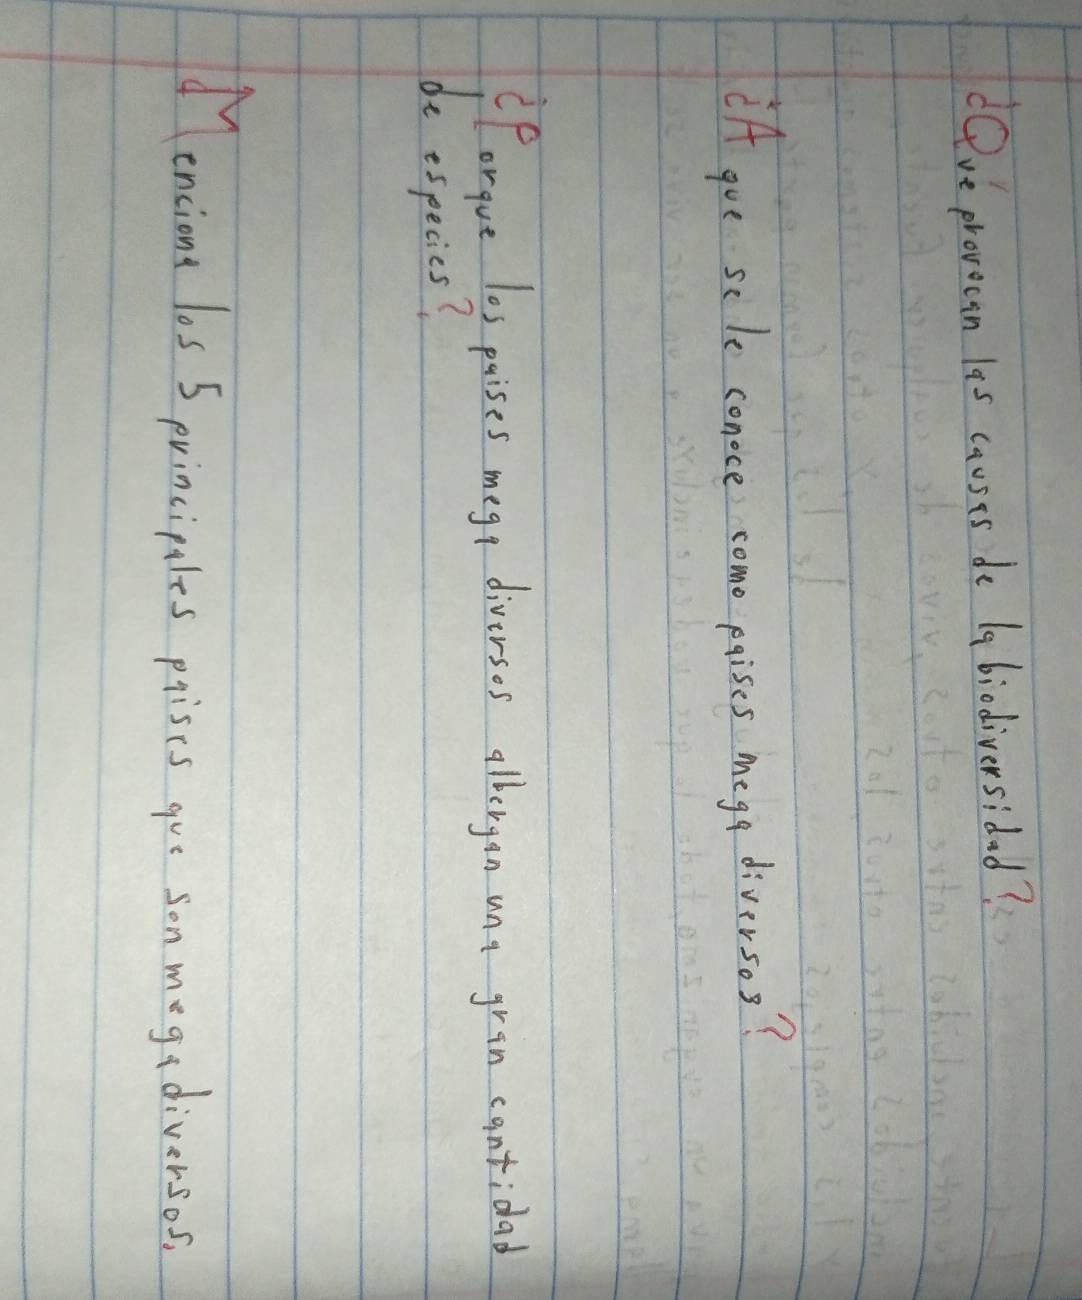 ¿Qué provocan las causas de la biodiversidad?
¿A que se le conoce como paises mega diversos?
¿Porque los paises mega diversos albergan una gran cantidad
de especies?
¿Menciona los 5 principales paises que son megadiversos.